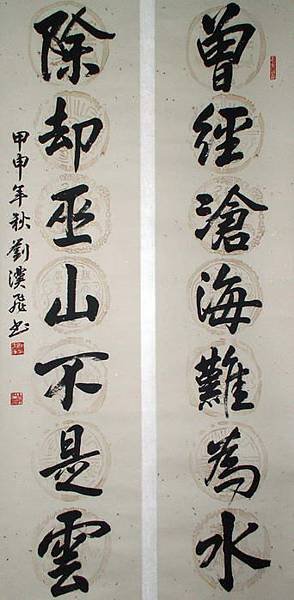 曾經滄海難為水
除却巫山不是雲
甲申年秋劉漢飛书